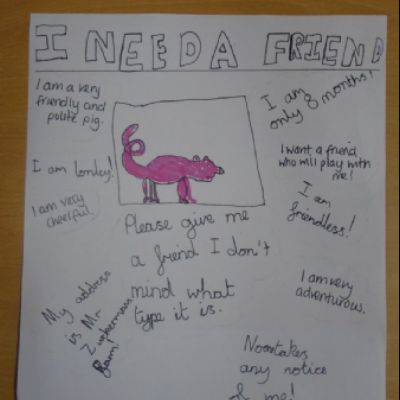 I NEED A FRIEND
I am a very
friendly and
polite pig.
I am
only 8 months!
I am lonley!
I want a friend
who will play with
me!
I am very
cheerful.
I am
friendless!
Please give me
a friend I don't
mind what
type it is.
I am very
adventurous.
My address
is Mr
Zuckermans
farm!
Noontakes
any notice
of me!